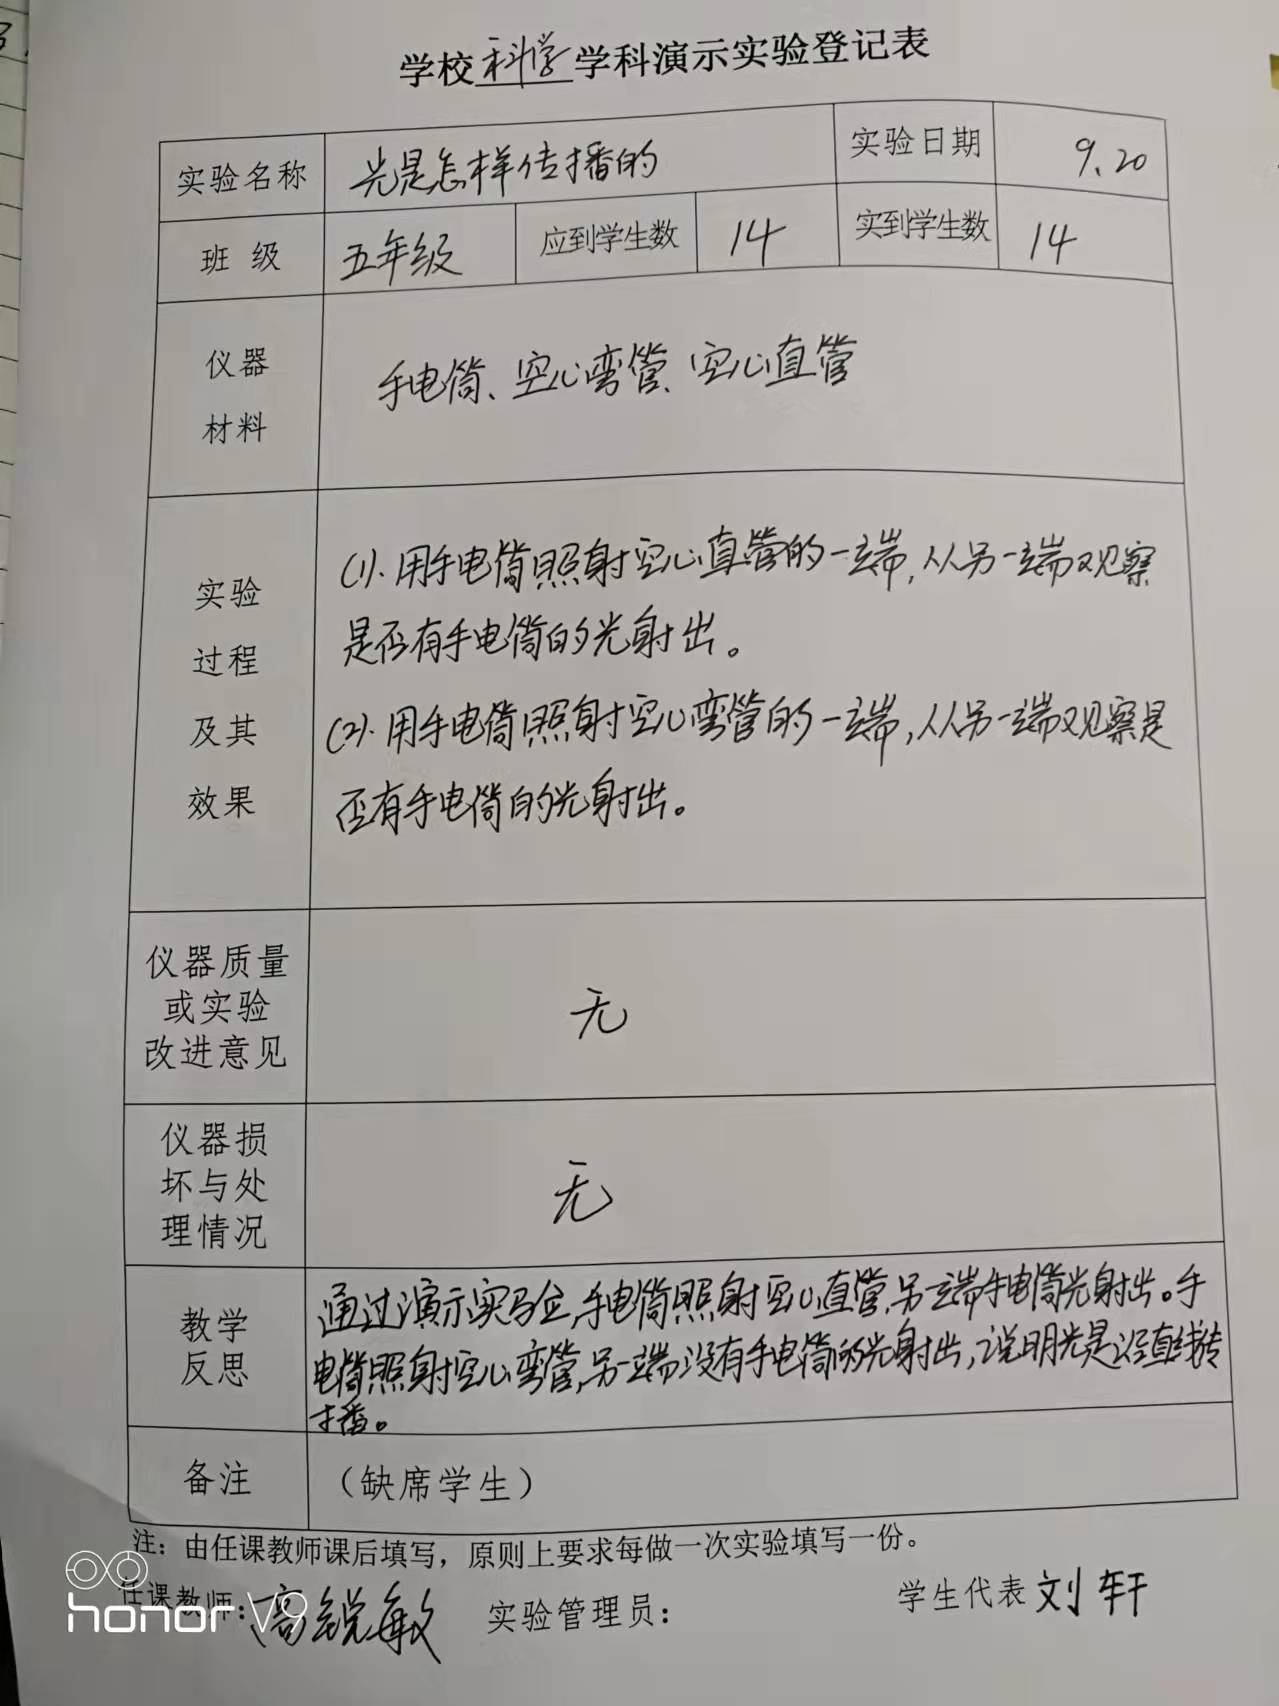 学校科学学科演示实验登记表
实验名称 光是怎样传播的 实验日期 9.20
班 级 五年级 应到学生数 14 实到学生数 14
仪器
材料
手电筒、空心弯管、空心直管
实验
过程
及其
效果
(1).用手电筒照射空心直管的一端,从另一端观察
是否有手电筒的光射出。
(2).用手电筒照射空心弯管的一端,从另一端观察是
否有手电筒的光射出。
仪器质量
或实验
改进意见
无
仪器损
坏与处
理情况
无
教学
反思
通过演示实验,手电筒照射空心直管,另一端手电筒光射出。手
电筒照射空心弯管,另一端没有手电筒的光射出,说明光是沿直线传
播。
备注 (缺席学生)
注：由任课教师课后填写，原则上要求每做一次实验填写一份。
任课教师:高锐敏 实验管理员： 学生代表 刘轩
honor V9